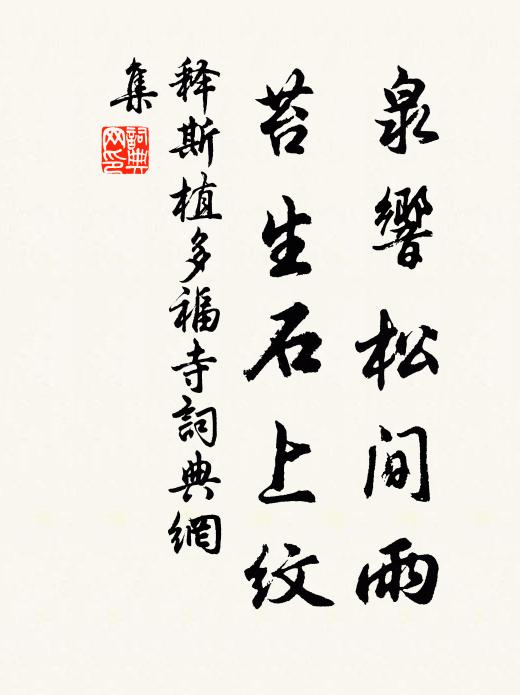 泉響松間雨
苔生石上紋
释斯植多福寺詞典網
集
詞典网印